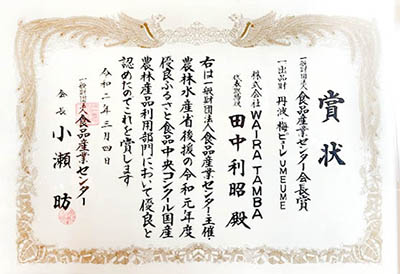 賞状
一般財団法人食品産業センター会長賞
一出品財 丹波 梅ビールUMEUME
株式会社 WAIRA TAMBA
代表取締役 田中利昭 殿
右は一般財団法人食品産業センター主催・
農林水産省後援の令和元年度
優良ふるさと食品中央コンクール国産
農林産品利用部門において優良と
認めたのでこれを賞します
令和二年三月四日
一般財団法人食品産業センター
会長 小瀬 昉